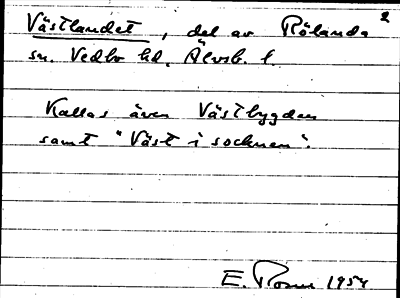 Västlandet, del av Rölanda 2
sn. Vedbo hd, Älvsb. l.
Kallas även Västbygden
samt "Väst i socknen".
E. 1954